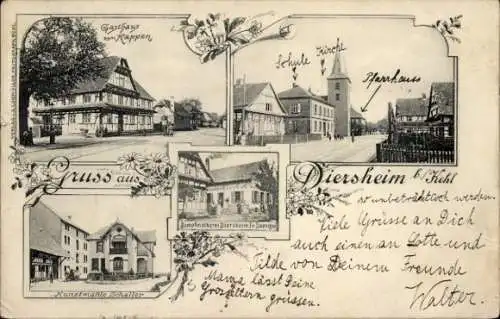 Gasthaus
zum Rappen
Schule
Kirche
Pfarrhaus
Gruss aus
Diersheim b/Kehl
Kunstmühle Schaller
Viele Grüsse an Dich
auch einen an Lotte und
Tilde von Deinem Freunde
Walter.
Mama lässt Deine
Grosseltern grüssen.